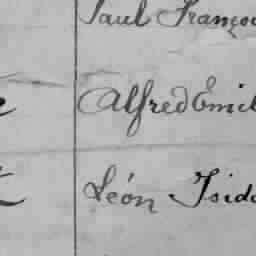 Paul Franço
Alfred Emil
Léon Isido